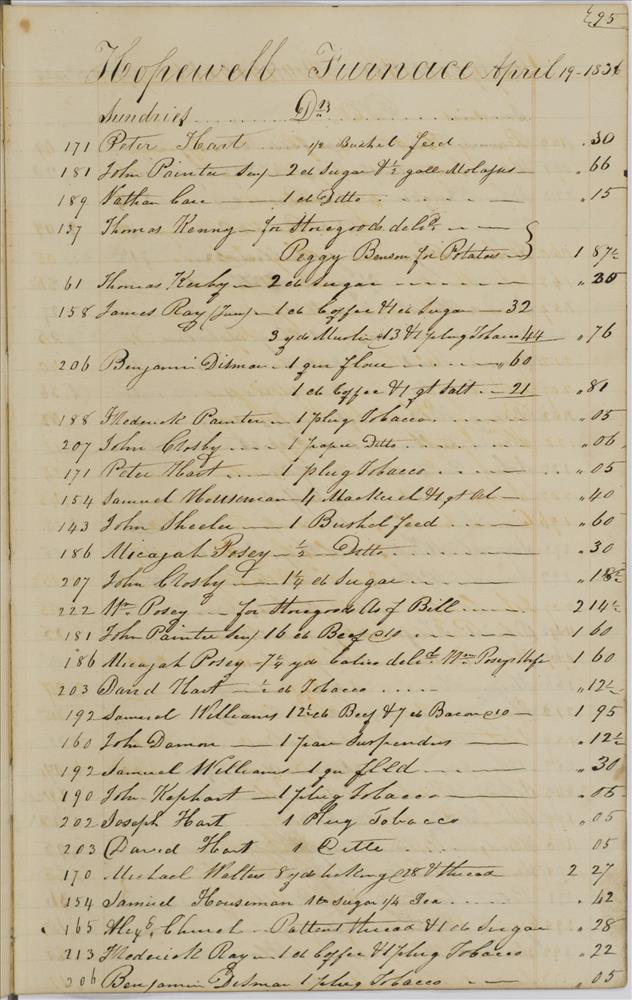 295
Hopewell Furnace April 19 - 1836
Sundries Drs
171 Peter Hart 1/2 Bushel feed .30
181 John Painter Senr 2 lb Sugar & 1/2 gall Molasses .66
189 Nathan Care 1 lb Ditto .15
137 Thomas Kenny for Storegoods deld.
Peggy Benson for Potatoes 1 87 1/2
61 Thomas Kerby 2 lb Sugar "
158 James Ray (Jun) 1 lb Coffee & 1 lb Sugar 32
3 yds Muslin @13 & 1 plug Tobacco 44 " 76
206 Benjamin Ditman 1 qr flour " 60
1 lb Coffee & 1 qt Salt 21 " 81
188 Frederick Painter 1 plug Tobacco " 05
207 John Crosby 1 paper Ditto " 06
171 Peter Hart 1 plug Tobacco " 05
154 Samuel Houseman 4 Mackerel & 1 qt " 40
143 John Sheeler 1 Bushel feed " 60
186 Micajah Posey 1/2 Ditto " 30
207 John Crosby 1 1/4 lb Sugar "
222 Wm. Posey for Storegoods As pr Bill 2 14 1/2
181 John Painter Senr 16 lb Beef @10 1 60
186 Micajah Posey 7 1/4 yds Calico deld. Wm Poseys Wife 1 60
203 David Hart 1/2 lb Tobacco " 12 1/2
192 Samuel Williams 12 1/2 lb Beef & 7 lb Bacon @10 1 95
160 John Damon 1 pair Suspenders " 12 1/2
192 Samuel Williams 1 qr feed " 30
190 John Kephart 1 plug Tobacco " 05
202 Joseph Hart 1 Plug Tobacco " 05
203 David Hart 1 Ditto 05
170 Michael Walters 8 yds @28 & thread 2 27
154 Samuel Houseman Sugar 1/4 Tea " 42
165 Church Pattent thread & 1 lb Sugar " 28
213 Frederick Ray 1 lb Coffee & 1 plug Tobacco " 22
206 Benjamin Ditman 1 plug Tobacco " 05